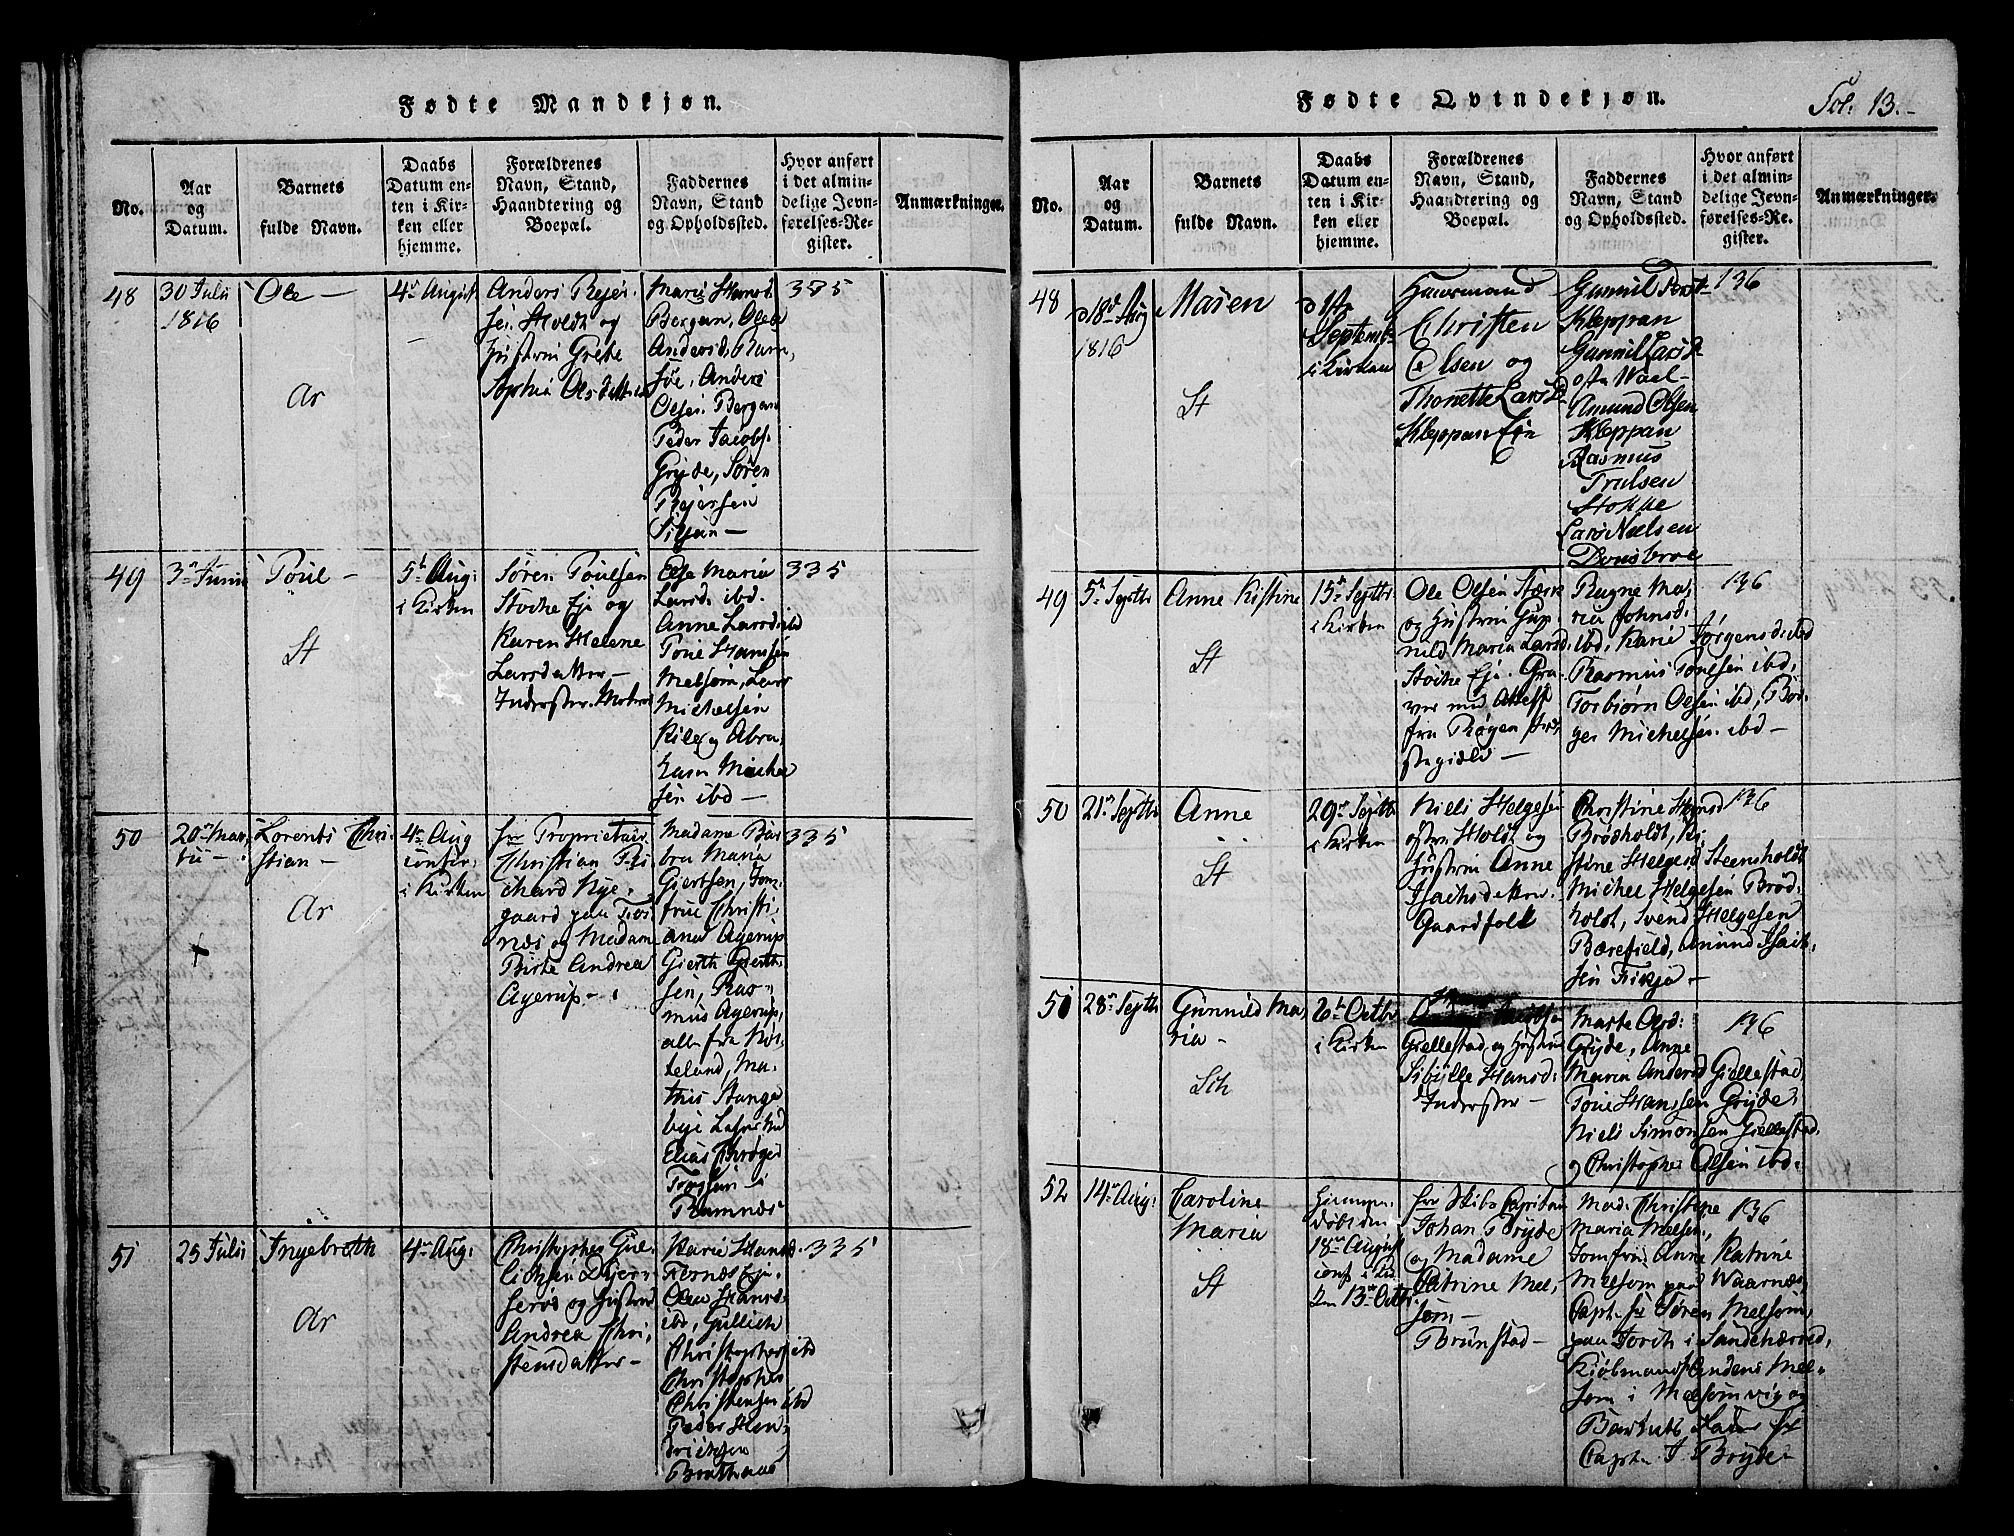 Fødte Mandkjøn.
No.
Aar
og
Datum.
Barnets
fulde Navn.
Daabs
Datum en-
ten i Kir-
ken eller
hjemme.
Forældrenes
Navn, Stand,
Haandtering og
Boepæl.
Faddernes
Navn, Stand
og Opholdssted.
Hvor anført
i det almin-
delige Jevn-
førelses-Re-
gister.
Anmærkninger.
48
30 Julii
1816
Ole —
Ar
4de August
Anders
sen Holdt og
Hustrue Grethe
Sophia Olsdatter
Marie Hansd.
Bergan, Olea
Andersd.
Anders
Olsen Bergan
Peder Jacobs.
Gryde, Søren
335
49
3de Junii
Poul —
St
5te Aug:
i Kirken
Søren Poulsen
Stocke Eje og
Karen Helene
Larsdatter —
Inderster.
Else Maria
Larsd. ibd.
Anne Larsd. ibd
Poul Hansen
Melsom, Lars
Michelsen
Kile og Abra,
ham Michel
sen ibd —
335
50
20de Mar,
tii —
Lorents Chri,
stian —
Ar
4de Aug
confir.
i Kirken
Hr Proprietair
Christian Ri
chard Nye,
gaard paa Fos,
næs og Madam
Birte Andrea
Agerup —
Madame Bar
bra Maria
Giertsen, Jom,
frue Christi,
ana Agerup
Gierth Gierth
sen, Ras,
mus Agerup,
alle fra
teland, Ma,
this Stange
bye
Elias
i
Ramnæs
335
51
25 Julii
Ingebreth
Ar
4de Aug:
Christopher Gul
lichsen
og Hustrue
Andrea Chri,
stensdatter —
Karie Hansd.
Fosnæs Eje,
Olea Hansd.
ibd, Gullich
Christophers ibd
Christopher
Christensen ibd
Peder Hen
richsen
335
Fødte Qvindekjøn.
Fol. 13.-
No.
Aar
og
Datum.
Barnets
fulde Navn.
Daabs
Datum en-
ten i Kir-
ken eller
hjemme.
Forældrenes
Navn, Stand,
Haandtering og
Boepæl.
Faddernes
Navn, Stand
og Opholdssted.
Hvor anført
i det almin-
delige Jevn-
førelses-Re-
gister.
Anmærkninger.
48
d 18de Aug
1816
Maren
St
d 1ste
Septemb
i Kirken
Huusmand
Christen
Olsen og
Thonette Larsd
Kleppan Eje
Gunnil
Kleppan
Gunnil Larsd
Amund Olsen
Kleppan
Rasmus
Trulsen
Stokke
Lars Nielsen
136
49
5te Septbr
Anne Kistine
St
15de Septbr
i Kirken
Ole Olsen Stærk
og Hustrue Gun,
nild Maria Larsd.
Stocke Eje.
med Attest
fra Røgen
stegield —
Ragne Ma,
ria Johnsd.
ibd, Karie Jørgensd. ibd
Rasmus Poulsen ibd,
Torbiørn Olsen ibd, Bør
ger Michelsen ibd —
136
50
21de Septbr
Anne
St
29de Septbr
i Kirken
Niels Helgesen
Holdt og
Hustrue Anne
Isachsdatter
Gaardfolk
Christine Hansd
Brødholdt, Ki
stine Helgesd Steensholdt
Michel Helgesen Brød,
holdt, Svend Helgesen
Bærefield, Amund Isach,
sen
136
51
28de Septbr
Gunnild Ma,
ria —
Sch
6te Octbr
i Kirken
Giellestad og Hustrue
Sibylle Hansd:
Inderster —
Marte Olsd:
Gryde, Anne
Maria Andersd Giellestad
Poul Hanssen Gryde,
Niels Simonsen Giellestad,
og Christopher Olsen ibd.
136
52
14de Aug:
Caroline
Maria
St
Hjemme
døbt den
18de August
conf. i Kir
den 13de Octbr.
Hr Skibs Capitain
Johan Bryde
og Madame
Catrine Mel,
som —
Brunstad —
Mad: Christine
Maria Melsom,
Jomfru Anne Katrine
Melsom paa Waarnæs
Capt. Hr Søren Melsom,
paa i Sandeherred,
Kiøbmand Andens Mel,
som i Melsomvig og
Barnets Fader Hr
Capta. J. Bryde
136